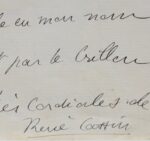 e en mon nom
t par le Crillon
ées cordiales de
René Cassin